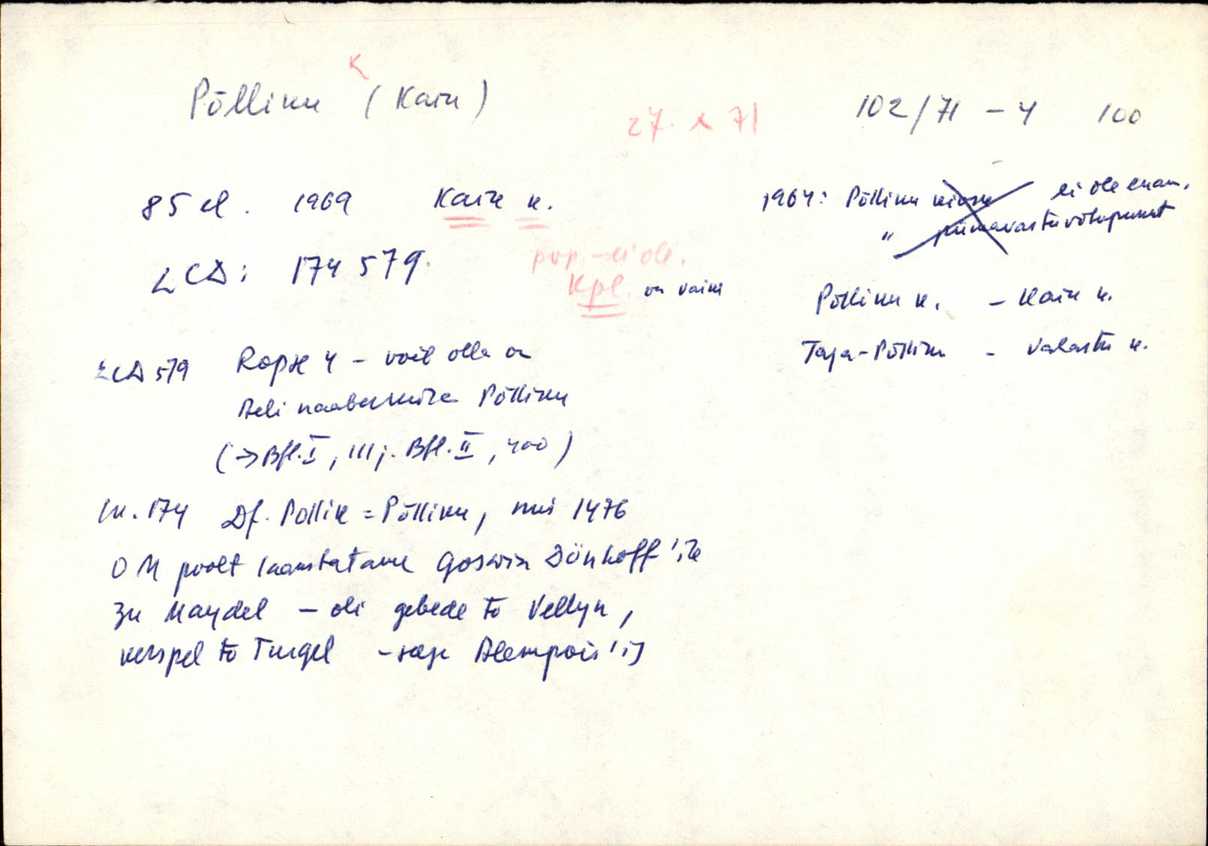 K
Põlliku (Karu)
27. X 71
102/71 - 4 100
85 el. 1969 Karu k.
LCD: 174 579.
pop.-ei ole.
Kpl. on vaim
1964: Põlliku kiosk ei ole enam.
" piimavastuvõtupunkt
Põlliku k. - Karu k.
Taga-Põlliku - Valastu k.
LCD 579 Rapse 4 - võib olla on
Aeli naaberküla Põlliku
(→ Bfl. I, 111; Bfl. II, 400)
lk. 174 Df. Pollik = Põlliku, mis 1476
OM poolt Goswin Dönhoff'ile
zu Maydel - oli gebede to Vellyn,
kerspel to Turgel - Alempois'is